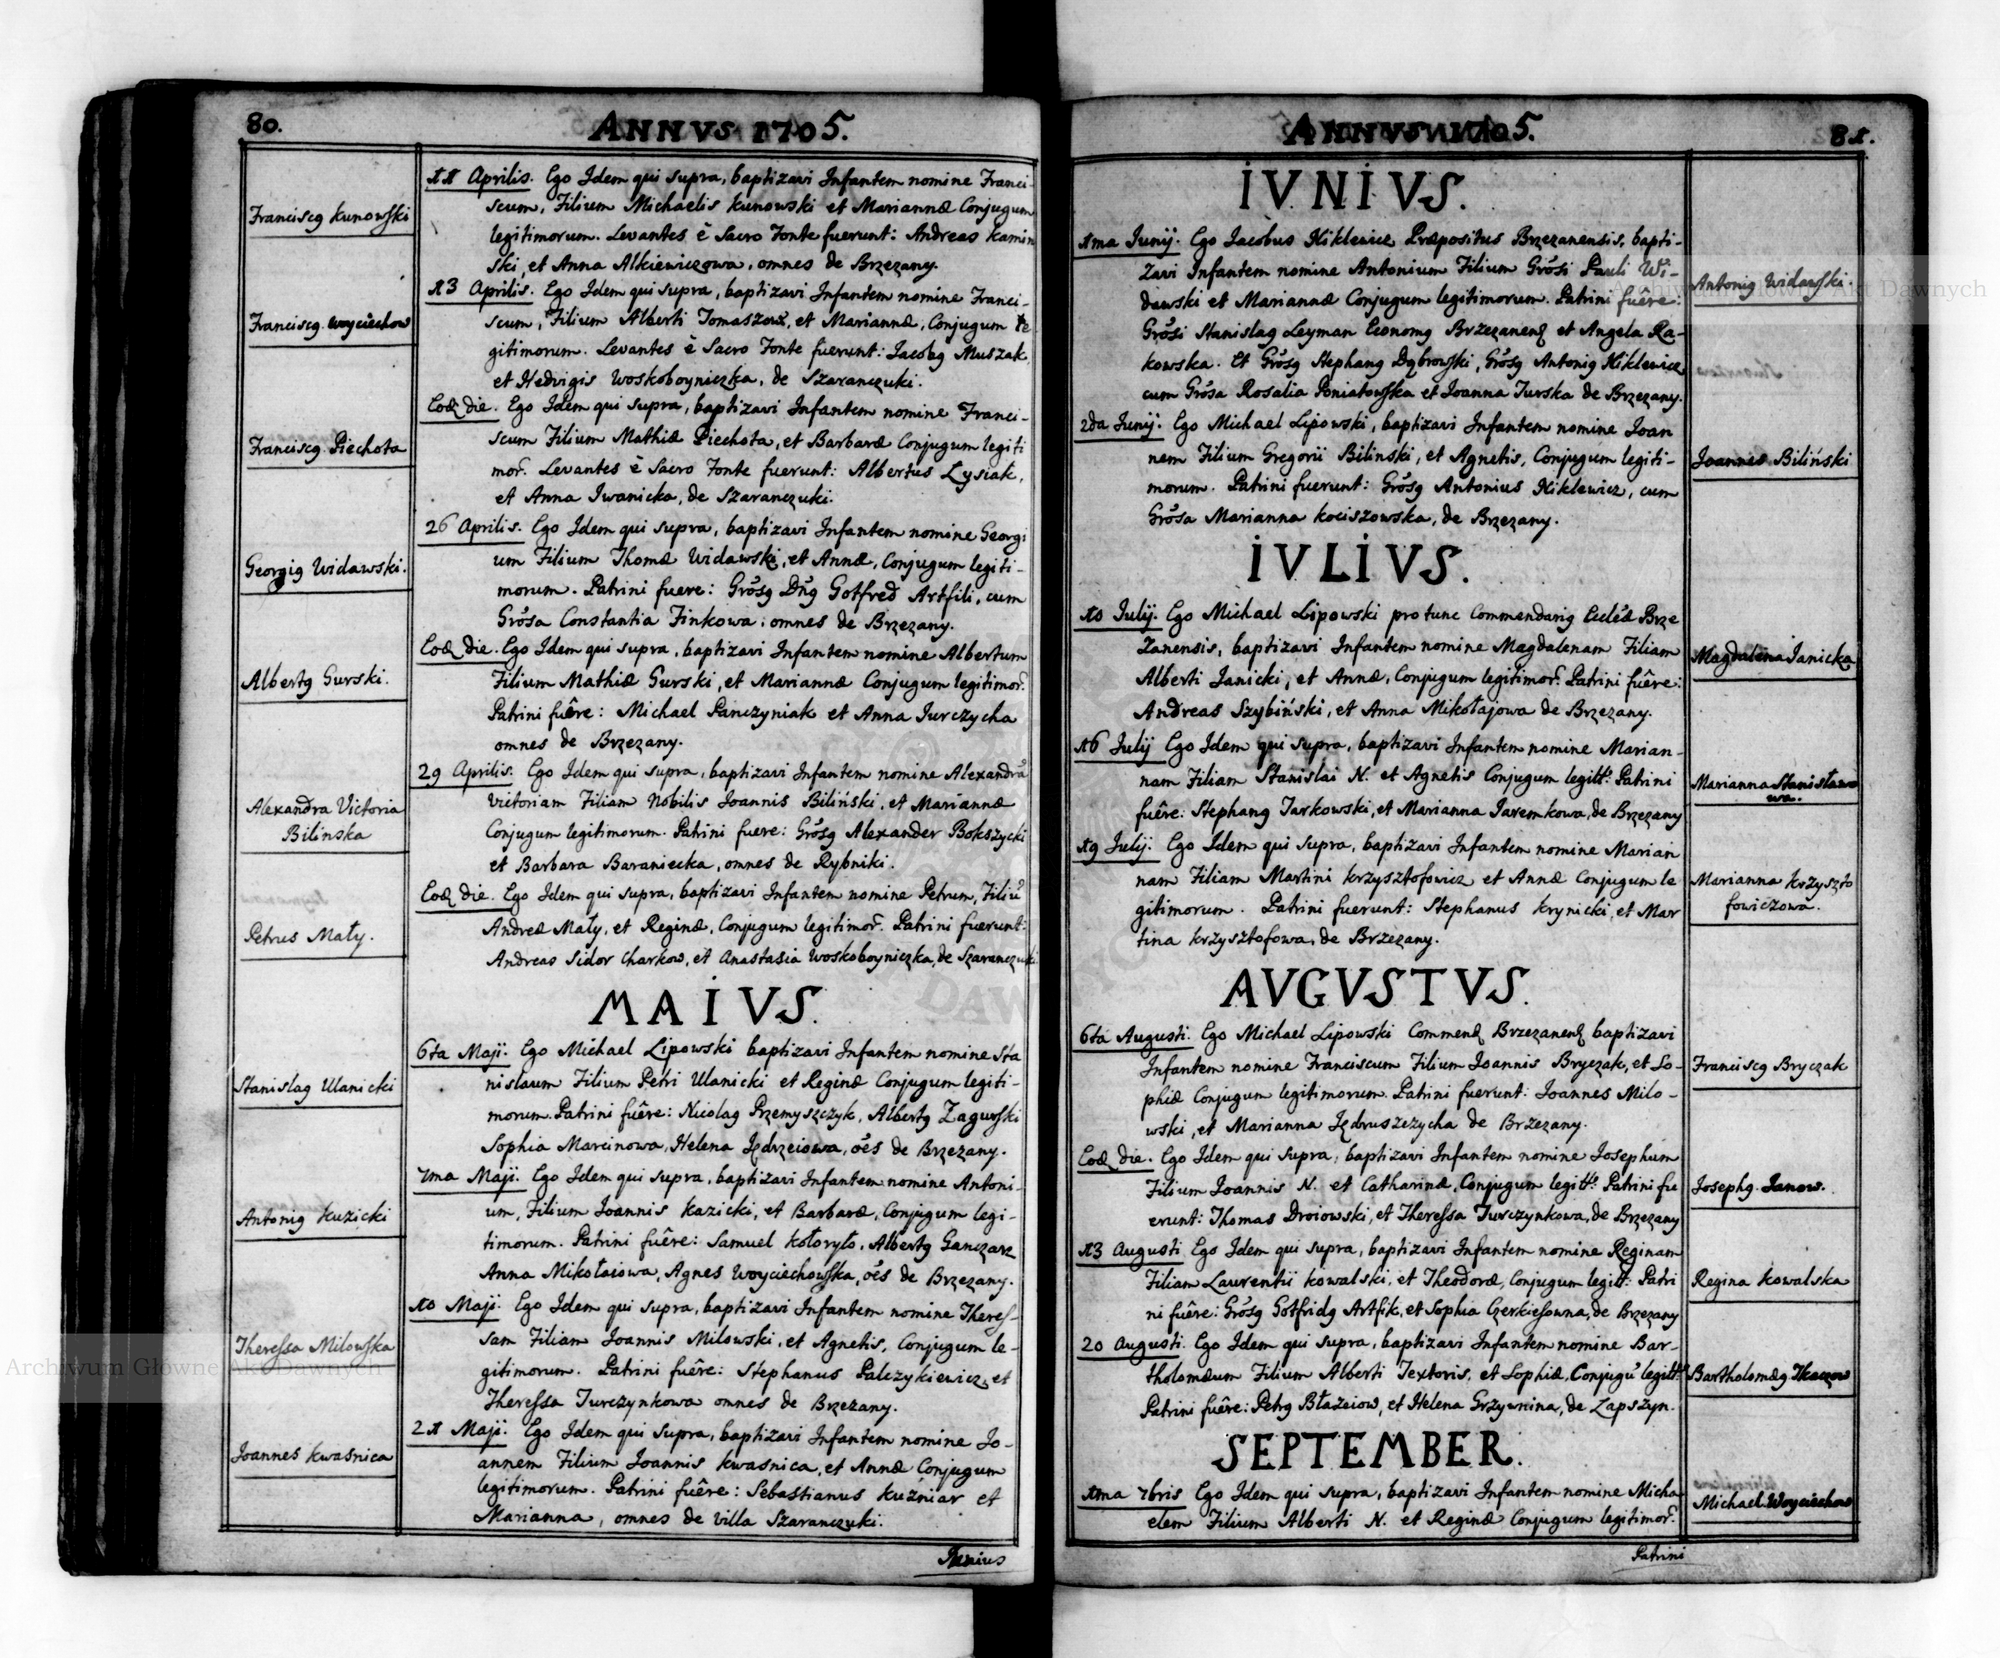 80.
ANNVS 1705.
Franciscꝰ Kunowski
11 Aprilis. Ego Idem qui supra, baptizavi Infantem nomine Franci-
scum, Filium Michaelis Kunowski et Mariannæ Conjugum
legitimorum. Levantes è Sacro Fonte fuerunt: Andreas Kamin
ski, et Anna Alkiewiczowa, omnes de Brzezany.
Franciscꝰ Woyciechow
13 Aprilis. Ego Idem qui supra, baptizavi Infantem nomine Franci-
scum, Filium Alberti Tomaszow, et Mariannæ, Conjugum le-
gitimorum. Levantes è Sacro Fonte fuerunt: Jacobꝰ Muszak,
et Hedvigis Woskoboyniczka, de Szaranczuki.
Franciscꝰ Piechota
Eod. die. Ego Idem qui supra, baptizavi Infantem nomine Franci-
scum Filium Mathiæ Piechota, et Barbaræ Conjugum legiti
mor. Levantes è Sacro Fonte fuerunt: Albertus Lysiak,
et Anna Iwanicka, de Szaranczuki.
Georgiꝰ Widawski.
26 Aprilis. Ego Idem qui supra, baptizavi Infantem nomine Georgi
um Filium Thomæ Widawski, et Annæ, Conjugum legiti-
morum. Patrini fuere: Grosꝰ Dnꝰ Gotfred Artfili, cum
Grosa Constantia Finkowa, omnes de Brzezany.
Albertꝰ Gurski.
Eod. die. Ego Idem qui supra, baptizavi Infantem nomine Albertum
Filium Mathiæ Gurski, et Mariannæ Conjugum legitimor.
Patrini fuêre: Michael Panczyniak et Anna Jurczycha
omnes de Brzezany.
Alexandra Victoria
Bilinska
29 Aprilis. Ego Idem qui supra, baptizavi Infantem nomine Alexandrã
Victoriam Filiam Nobilis Joannis Biliński, et Mariannæ
Conjugum legitimorum. Patrini fuere: Grosꝰ Alexander Bokszycki
et Barbara Baraniecka, omnes de Rybniki.
Petrus Mały.
Eod. die. Ego Idem qui supra, baptizavi Infantem nomine Petrum, Filiũ
Andreæ Mały, et Reginæ, Conjugum legitimor. Patrini fuerunt:
Andreas Sidor Charkow, et Anastasia Woskoboyniczka, de Szaranczuki
MAIVS.
Stanislaꝰ Ulanicki
6ta Maji. Ego Michael Lipowski baptizavi Infantem nomine Sta
nislaum Filium Petri Ulanicki et Reginæ Conjugum legiti-
morum. Patrini fuêre: Nicolaꝰ Przemyszczyk, Albertꝰ Zagurski
Sophia Marcinowa, Helena Jędrzeiowa, oẽs de Brzezany.
Antoniꝰ Kuzicki
7ma Maji. Ego Idem qui supra, baptizavi Infantem nomine Antoni-
um, Filium Joannis Kazicki, et Barbaræ, Conjugum legi-
timorum. Patrini fuêre: Samuel Kołoryło, Albertꝰ Ganczarz
Anna Mikołaiowa, Agnes Woyciechowska, oẽs de Brzezany.
Theressa Milowska
10 Maji. Ego Idem qui supra, baptizavi Infantem nomine Theres-
sam Filiam Joannis Milowski, et Agnetis, Conjugum le-
gitimorum. Patrini fuêre: Stephanus Palczykiewicz, et
Theressa Jurczynkowa omnes de Brzezany.
Joannes Kwasnica
21 Maji. Ego Idem qui supra, baptizavi Infantem nomine Jo-
annem Filium Joannis Kwasnica, et Annæ Conjugum
legitimorum. Patrini fuêre: Sebastianus Kuźniar et
Marianna, omnes de villa Szaranczuki.
Junius
ANNVS 1705.
81.
IVNIVS.
1ma Junij. Ego Jacobus Niklewicz Præpositus Brzezanensis, bapti-
zavi Infantem nomine Antonium Filium Grosi Pauli Wi-
dawski et Mariannæ Conjugum legitimorum. Patrini fuêre:
Grosi Stanislaꝰ Leyman Economꝰ Brzezanen. et Angela Ra-
kowska. Et Grosꝰ Stephanꝰ Dąbrowski, Grosꝰ Antoniꝰ Niklewicz
cum Grosa Rosalia Poniatowska et Joanna Turska de Brzezany.
Antoniꝰ Widawski
2da Junij. Ego Michael Lipowski, baptizavi Infantem nomine Joan
nem Filium Gregorii Bilinski, et Agnetis, Conjugum legiti-
morum. Patrini fuerunt: Grosꝰ Antonius Niklewicz, cum
Grosa Marianna Kociszowska, de Brzezany.
Joannes Biliński
IVLIVS.
10 Julij. Ego Michael Lipowski pro tunc Commendariꝰ Eccléæ Brze
zanensis, baptizavi Infantem nomine Magdalenam Filiam
Alberti Janicki, et Annæ, Conjugum legitimor. Patrini fuêre:
Andreas Szybiński, et Anna Mikołajowa de Brzezany.
Magdalena Janicka
16 Julij Ego Idem qui supra, baptizavi Infantem nomine Marian-
nam Filiam Stanislai N. et Agnetis Conjugum legitt. Patrini
fuêre: Stephanꝰ Jarkowski, et Marianna Jaremkowa, de Brzezany
Marianna Stanisławo
wa.
19 Julij. Ego Idem qui supra, baptizavi Infantem nomine Marian
nam Filiam Martini Krzysztofowicz et Annæ Conjugum le
gitimorum. Patrini fuerunt: Stephanus Krynicki, et Mar
tina Krzysztofowa, de Brzezany.
Marianna Krzyszto
fowiczowa.
AVGVSTVS.
6ta Augusti. Ego Michael Lipowski Commend. Brzezanen. baptizavi
Infantem nomine Franciscum Filium Joannis Bryczak, et So-
phiæ Conjugum legitimorum. Patrini fuerunt: Joannes Milo-
wski, et Marianna Jędruszczycha de Brzezany.
Franciscꝰ Bryczak
Eod. die. Ego Idem qui supra, baptizavi Infantem nomine Josephum
Filium Joannis N. et Catharinæ, Conjugum legitt. Patrini fu
erunt: Thomas Droiowski, et Theressa Jurczynkowa, de Brzezany
Josephꝰ Janow.
13 Augusti Ego Idem qui supra, baptizavi Infantem nomine Reginam
Filiam Laurentii Kowalski, et Theodoræ, Conjugum legitt. Patri
ni fuêre: Grosꝰ Gotfridꝰ Artfik, et Sophia Czerkiesowna, de Brzezany
Regina Kowalska
20 Augusti. Ego Idem qui supra, baptizavi Infantem nomine Bar-
tholomæum Filium Alberti Textoris, et Sophiæ, Conjugũ legitt.
Patrini fuêre: Petrꝰ Błażeiow, et Helena Grzywnina, de Zapszyn.
Bartholomæꝰ Tkaczow
SEPTEMBER.
1ma 7bris Ego Idem qui supra, baptizavi Infantem nomine Micha
elem Filium Alberti N. et Reginæ Conjugum legitimor.
Michael Woyciechow
Patrini
Archiwum Główne Akt Dawnych
Archiwum Główne Akt Dawnych